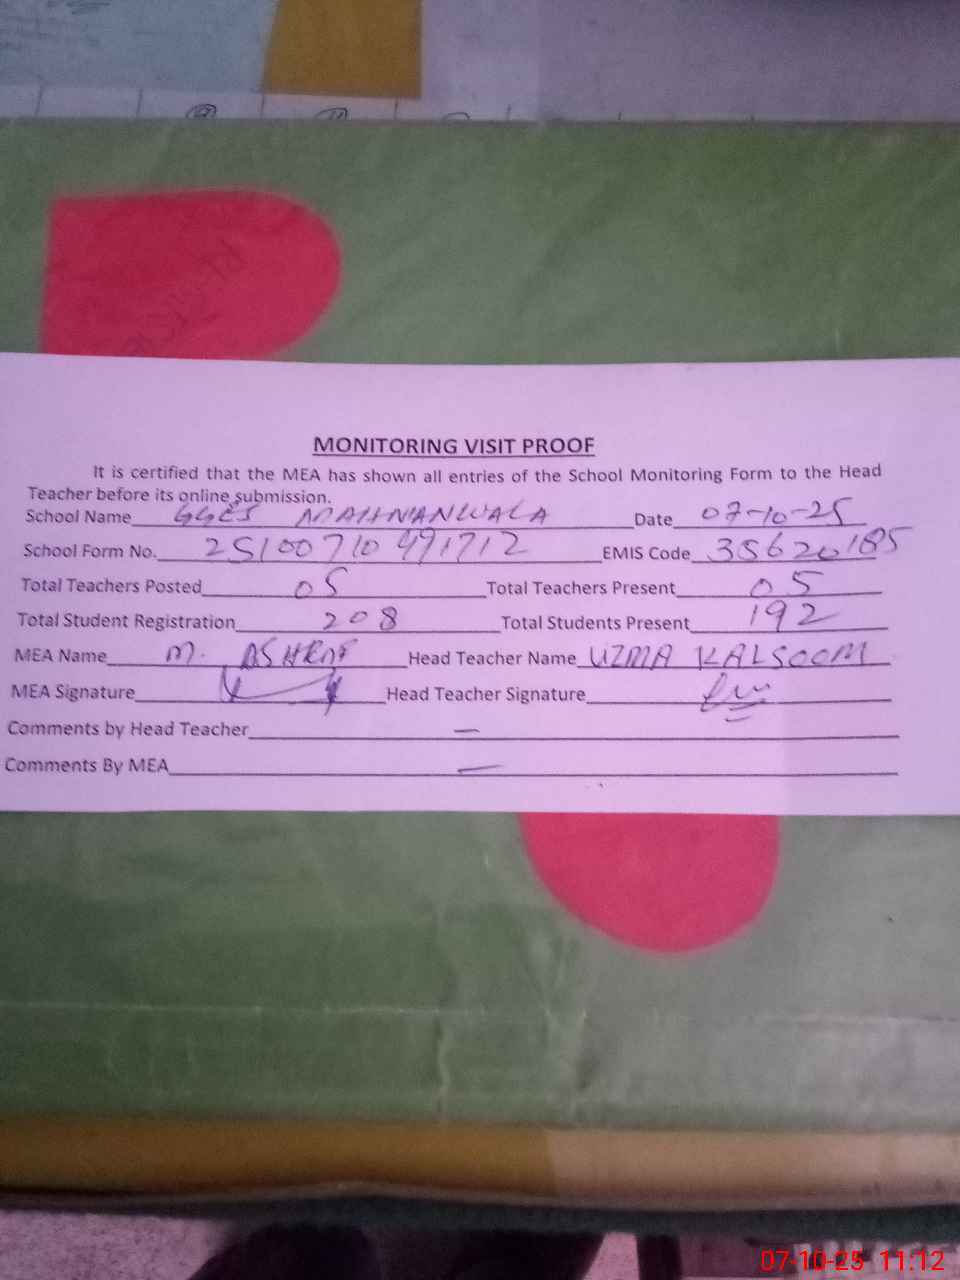 MONITORING VISIT PROOF
It is certified that the MEA has shown all entries of the School Monitoring Form to the Head
Teacher before its online submission.
School Name GGES MAHNIANWALA Date 07-10-25
School Form No. 25100710491712 EMIS Code 35620185
Total Teachers Posted 05 Total Teachers Present 05
Total Student Registration 208 Total Students Present 192
MEA Name M. ASHRAF Head Teacher Name UZMA KALSOOM
MEA Signature Head Teacher Signature
Comments by Head Teacher —
Comments By MEA —
07-10-25 11:12